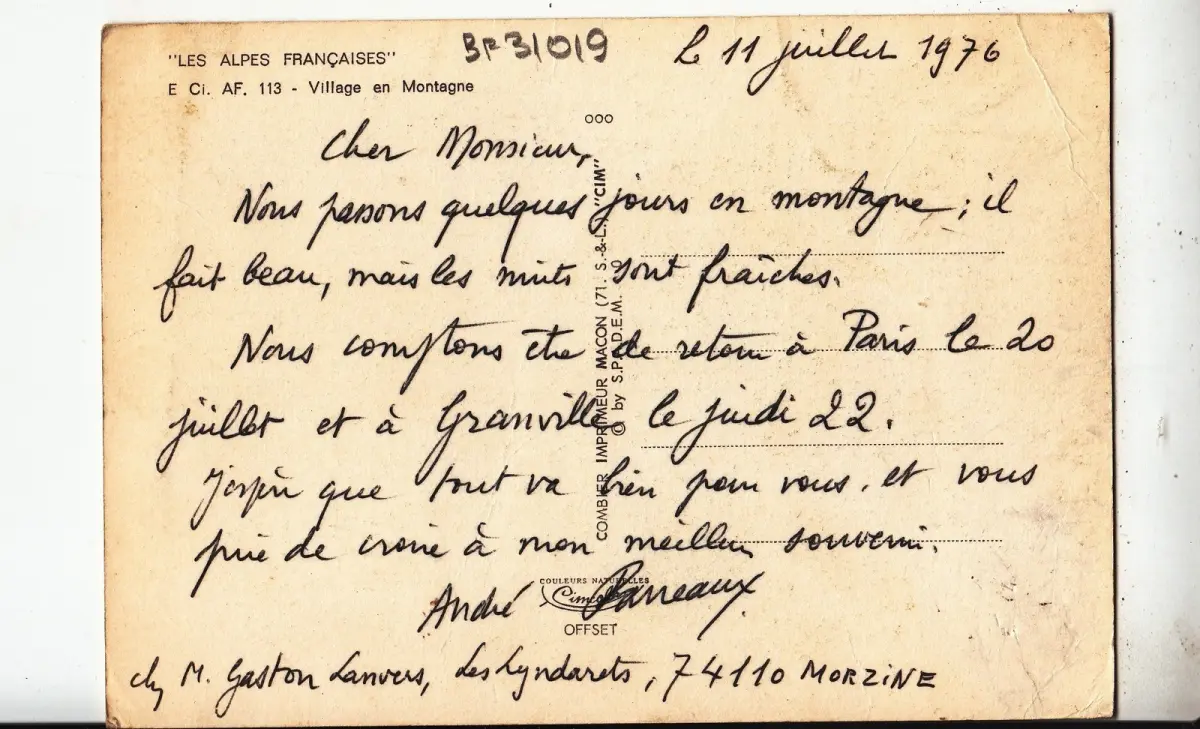 "LES ALPES FRANÇAISES"
E Ci. AF. 113 - Village en Montagne
BF31019
Le 11 juillet 1976
ooo
Cher Monsieur,
Nous passons quelques jours en montagne ; il
fait beau, mais les nuits sont fraîches.
Nous comptons être de retour à Paris le 20
juillet et à Granville le jeudi 22.
J'espère que tout va bien pour vous, et vous
prie de croire à mon meilleur souvenir.
André Parreaux
chez M. Gaston Lanvers, Les Lyndarets, 74110 MORZINE
COMBIER IMPRIMEUR MACON (71. S.-&-L.) "CIM"
© by S.P.A.D.E.M.
COULEURS NATURELLES
OFFSET